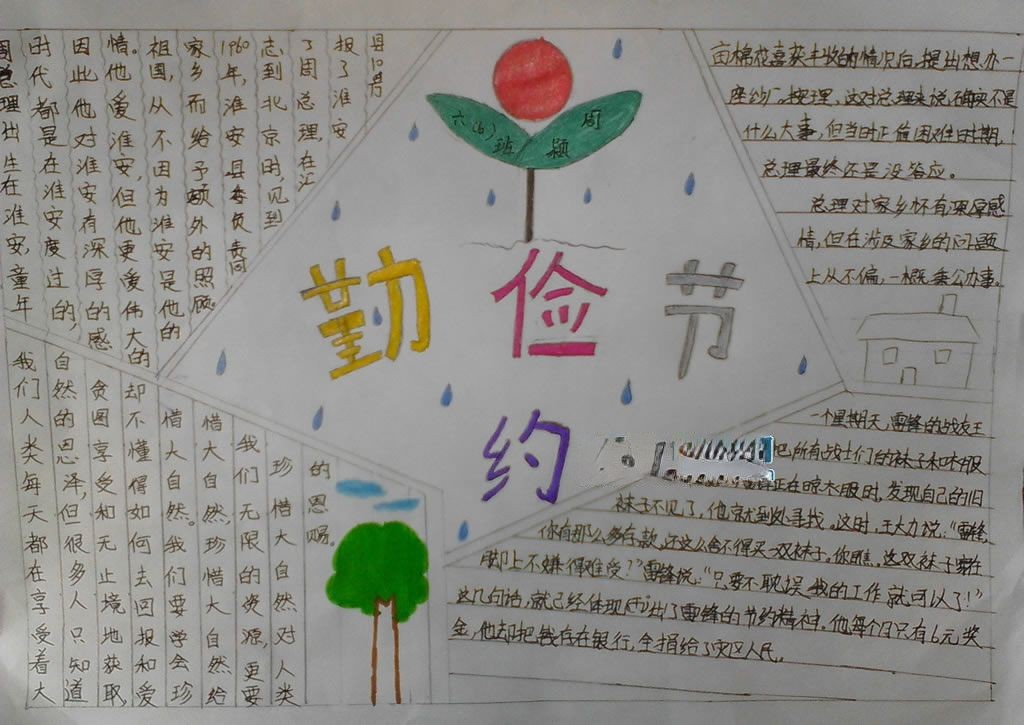 六(6)班
周颖
勤俭节
约
周总理出生在淮安,童年
时代都是在淮安度过的,
因此他对淮安有深厚的感
情。他爱淮安,但他更爱伟大的
祖国,从不因为淮安是他的
家乡而给予额外的照顾。
1960年,淮安县委负责同
志到北京时,见到
了周总理,在汇
报了淮安
县10万
亩棉花喜获丰收的情况后,提出想办一
座纱厂。按理,这对总理来说,确实不是
什么大事,但当时正值困难时期,
总理最终还是没答应。
总理对家乡怀有深厚感
情,但在涉及家乡的问题
上从不偏,一概秉公办事。
我们人类每天都在享受着大
自然的恩泽,但很多人只知道
贪图享受和无止境地获取,
却不懂得如何去回报和爱
惜大自然。我们要学会珍
惜大自然,珍惜大自然给
我们无限的资源,更要
珍惜大自然对人类
的恩赐。
一个星期天,雷锋的战友王
把所有战士们的袜子和衣服
正在晾衣服时,发现自己的旧
袜子不见了,他就到处寻找。这时,王大力说:“雷锋,
你有那么多存款,还这么舍不得买一双袜子,你瞧,这双袜子穿在
脚上不嫌得难受?”雷锋说:“只要不耽误我的工作就可以了!”
这几句话,就已经体现出了雷锋的节约精神。他每个月只有6元奖
金,他却把钱存在银行,全捐给了灾区人民。